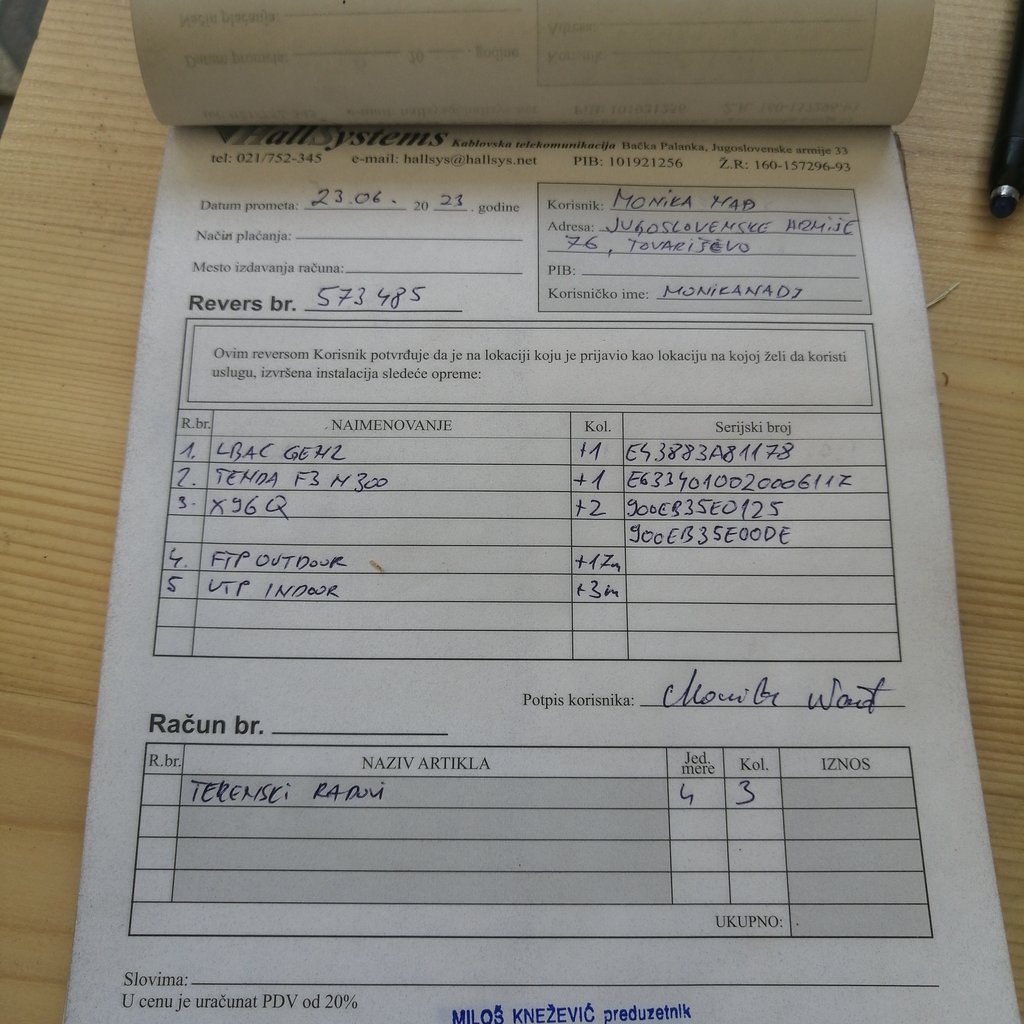 HallSystems Kablovska telekomunikacija Bačka Palanka, Jugoslovenske armije 33
tel: 021/752-345 e-mail: hallsys@hallsys.net PIB: 101921256 Ž.R: 160-157296-93
Datum prometa: 23.06. 20 23. godine
Način plaćanja:
Mesto izdavanja računa:
Revers br. 573485
Korisnik: MONIKA NAĐ
Adresa: JUGOSLOVENSKE ARMIJE
76, TOVARIŠEVO
PIB:
Korisničko ime: MONIKANADJ
Ovim reversom Korisnik potvrđuje da je na lokaciji koju je prijavio kao lokaciju na kojoj želi da koristi
uslugu, izvršena instalacija sledeće opreme:
R.br. NAIMENOVANJE Kol. Serijski broj
1. LBAC GEN2 +1 E43883A81178
2. TENDA F3 N300 +1 E6334010020006117
3. X96Q +2 900EB35E0125
900EB35E00DE
4. FTP OUTDOOR +17m
5 UTP INDOOR +3m
Potpis korisnika:
Račun br.
R.br. NAZIV ARTIKLA Jed. mere Kol. IZNOS
TERENSKI RADOVI 4 3
UKUPNO:
Slovima:
U cenu je uračunat PDV od 20%
MILOŠ KNEŽEVIĆ preduzetnik